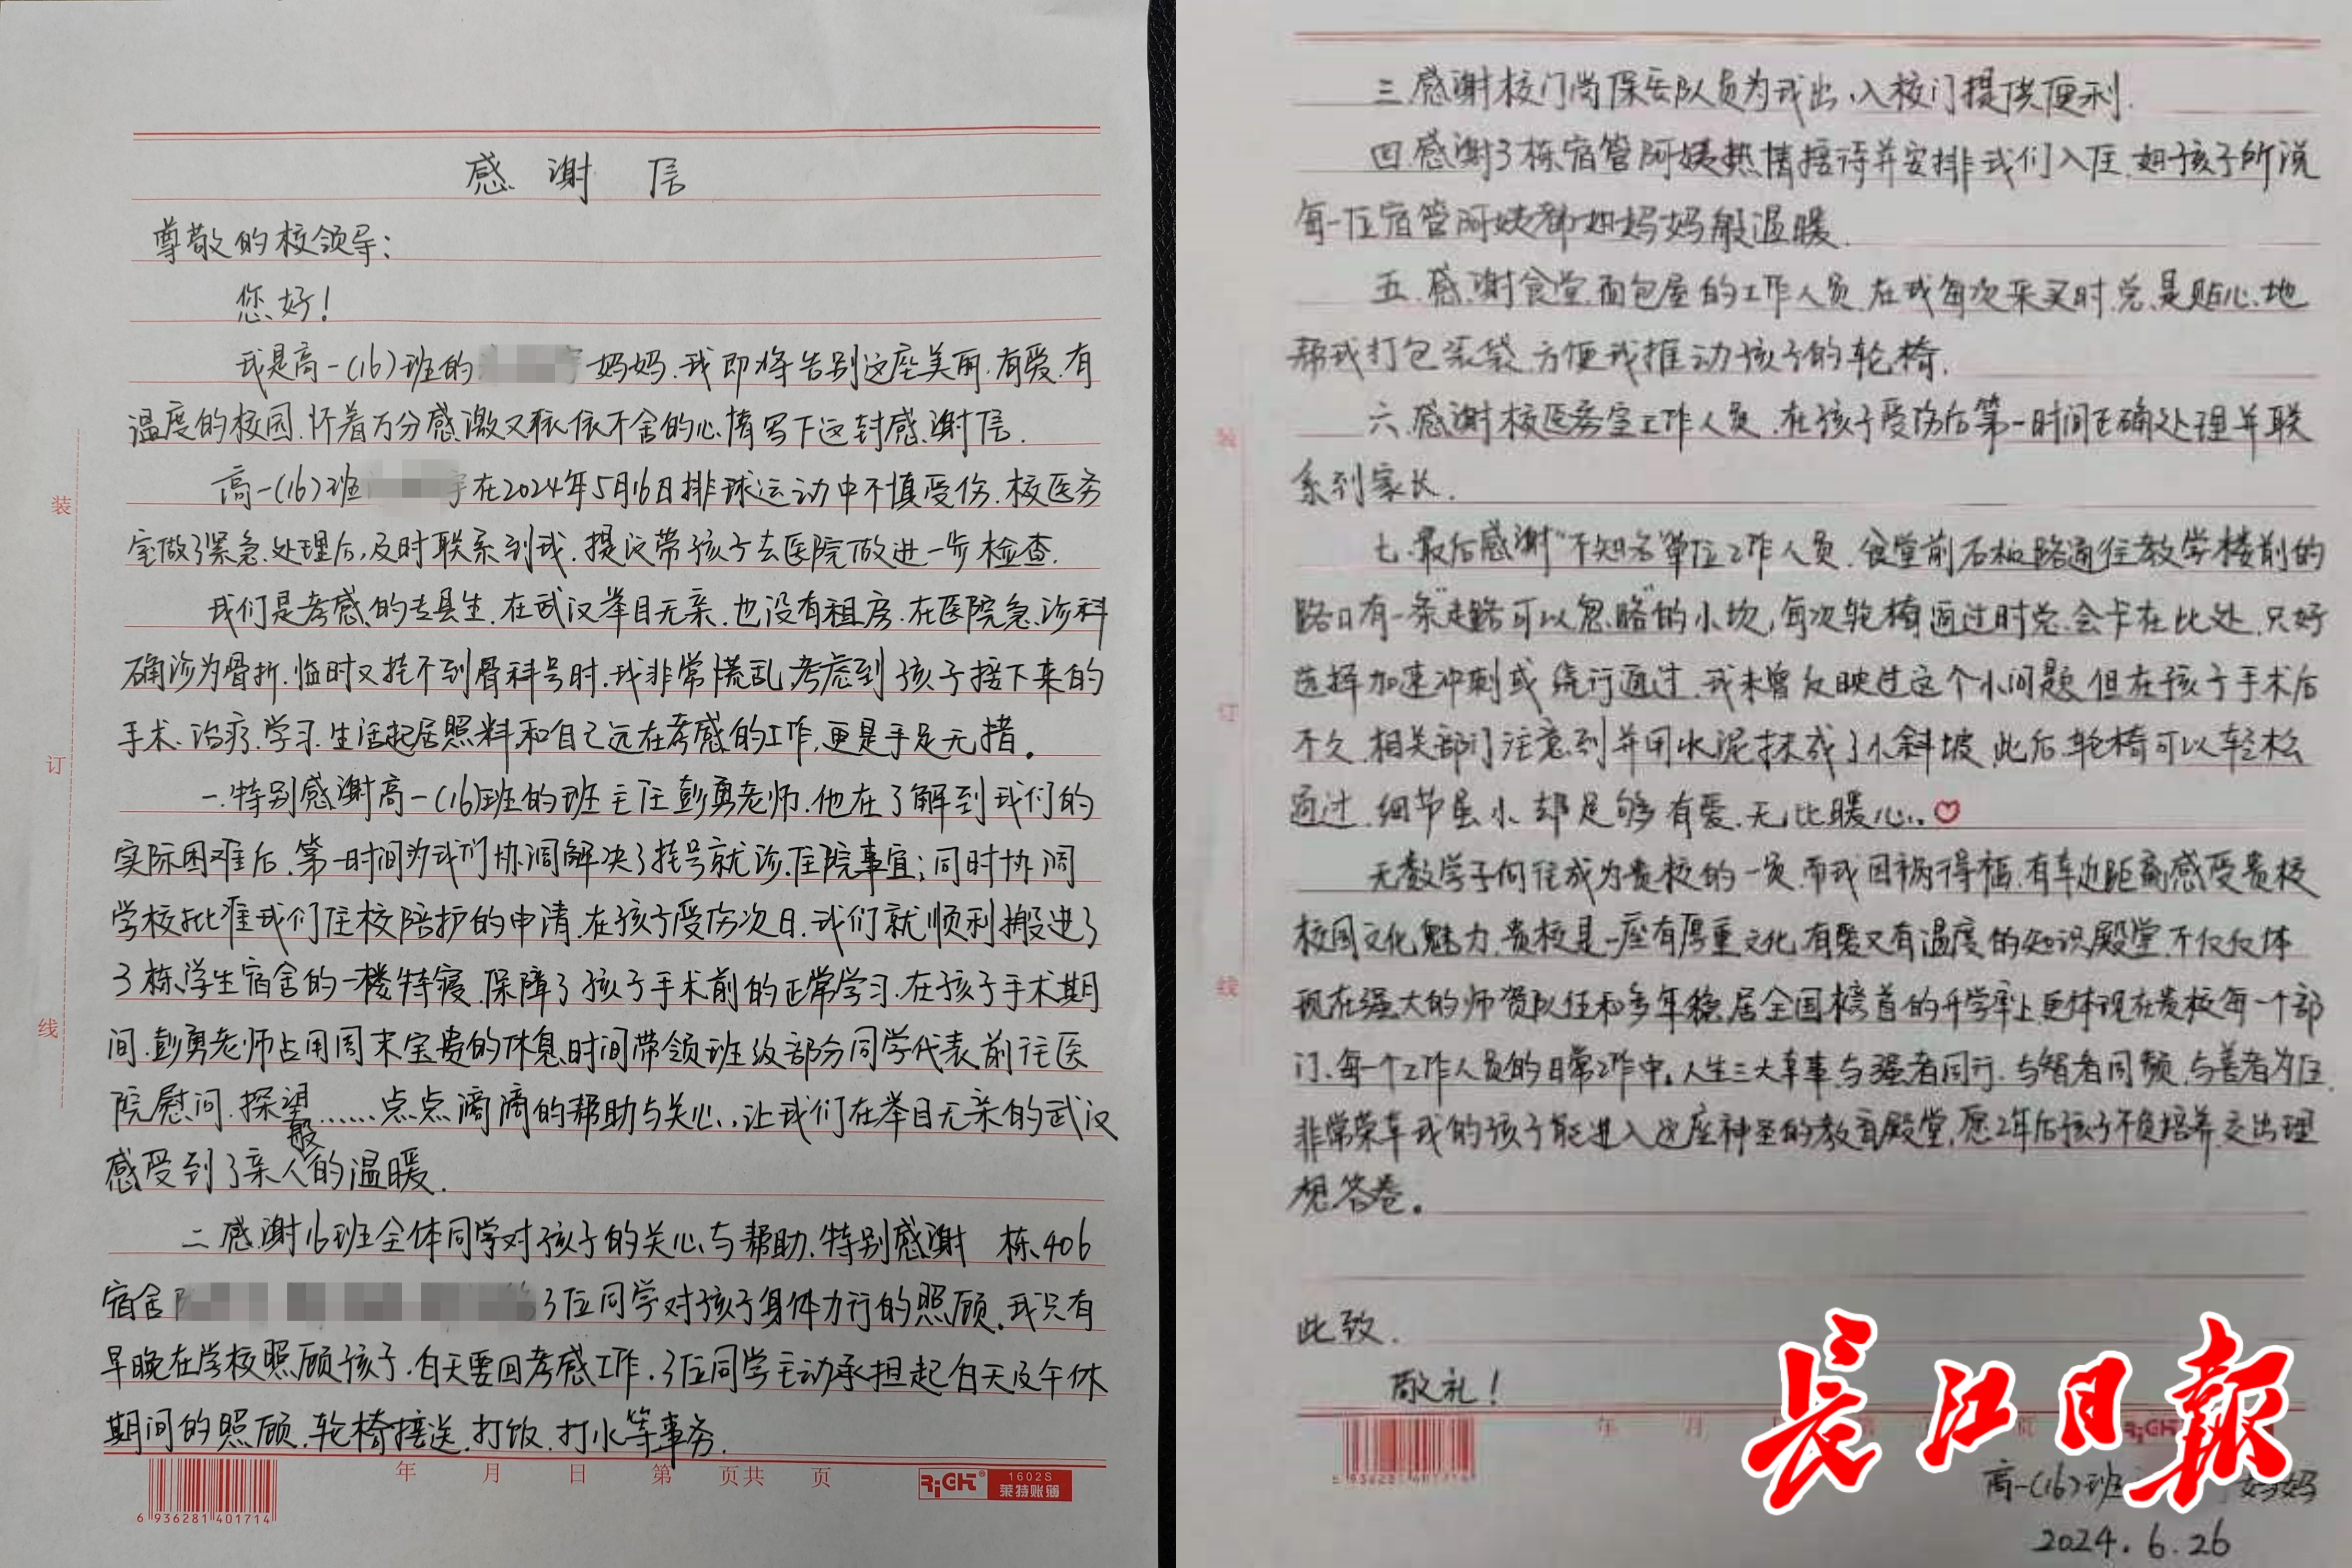 感谢信
尊敬的校领导：
您好！
我是高一(16)班的 妈妈.我即将告别这座美丽.有爱.有
温度的校园.怀着万分感激又依依不舍的心情写下这封感谢信.
高一(16)班 宇在2024年5月16日排球运动中不慎受伤.校医务
室做了紧急处理后,及时联系到我.提议带孩子去医院做进一步检查.
我们是孝感的专县生.在武汉举目无亲.也没有租房.在医院急诊科
确诊为骨折.临时又挂不到骨科号时.我非常慌乱,考虑到孩子接下来的
手术.治疗.学习.生活起居照料和自己远在孝感的工作,更是手足无措。
一.特别感谢高一(16)班的班主任彭勇老师.他在了解到我们的
实际困难后.第一时间为我们协调解决了挂号就诊.住院事宜;同时协调
学校批准我们住校陪护的申请.在孩子受伤次日.我们就顺利搬进了
3栋学生宿舍的一楼特寝.保障了孩子手术前的正常学习.在孩子手术期
间.彭勇老师占用周末宝贵的休息时间带领班级部分同学代表前往医
院慰问.探望……点点滴滴的帮助与关心..让我们在举目无亲的武汉
感受到了亲人般的温暖.
二.感谢16班全体同学对孩子的关心与帮助.特别感谢 栋406
宿舍 3位同学对孩子身体力行的照顾.我只有
早晚在学校照顾孩子.白天要回孝感工作.3位同学主动承担起白天及午休
期间的照顾.轮椅接送.打饭.打水等事务.
装
订
线
年 月 日 第 页共 页
RiCH® 1602S
莱特账簿
6 936281 401714
三.感谢校门岗保安队员为我出.入校门提供便利.
四.感谢3栋宿管阿姨热情接待并安排我们入住.如孩子所说
每一位宿管阿姨都如妈妈般温暖.
五.感谢食堂.面包屋的工作人员.在我每次采买时总是贴心地
帮我打包装袋.方便我推动孩子的轮椅.
六.感谢校医务室工作人员.在孩子受伤后第一时间正确处理并联
系到家长.
七.最后感谢"不知名"单位工作人员.食堂前石板路通往教学楼前的
路口有一条"走路可以忽略"的小坎,每次轮椅通过时总会卡在此处.只好
选择加速冲刺或绕行通过.我未曾反映过这个小问题.但在孩子手术后
不久.相关部门注意到并用水泥抹成了小斜坡.此后轮椅可以轻松
通过.细节虽小.却足够有爱.无比暖心..♡
无数学子向往成为贵校的一员.而我因祸得福.有幸近距离感受贵校
校园文化魅力.贵校是一座有厚重文化,有爱又有温度的知识殿堂.不仅仅体
现在强大的师资队伍和多年稳居全国榜首的升学率上.更体现在贵校每一个部
门.每一个工作人员的日常工作中。人生三大幸事:与强者同行.与智者同频.与善者为伍.
非常荣幸我的孩子能进入这座神圣的教育殿堂.愿2年后孩子不负培养.交出理
想答卷。
此致.
敬礼！
装
订
线
年 月
RiCH
6 936281 401714
长江日报
高一(16)班 妈妈
2024.6.26